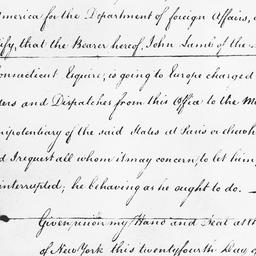 merica for the Department of foreign Affairs, 
tify, that the Bearer hereof, John Lamb of the
onnecticut Esquire, is going to Europe charged
ers and Dispatches from this Office to the M
nipotentiary of the said States at Paris or elsewh
d I request all whom it may concern, to let him
interrupted; he behaving as he ought to do. —
Given under my Hand and Seal at th
of New York this twentyfourth Day o